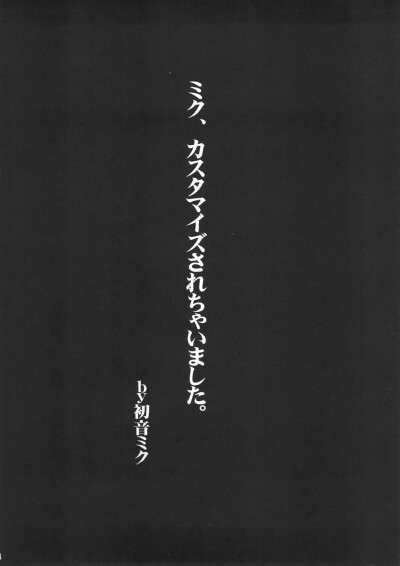 ミク、カスタマイズされちゃいました。
by初音ミク